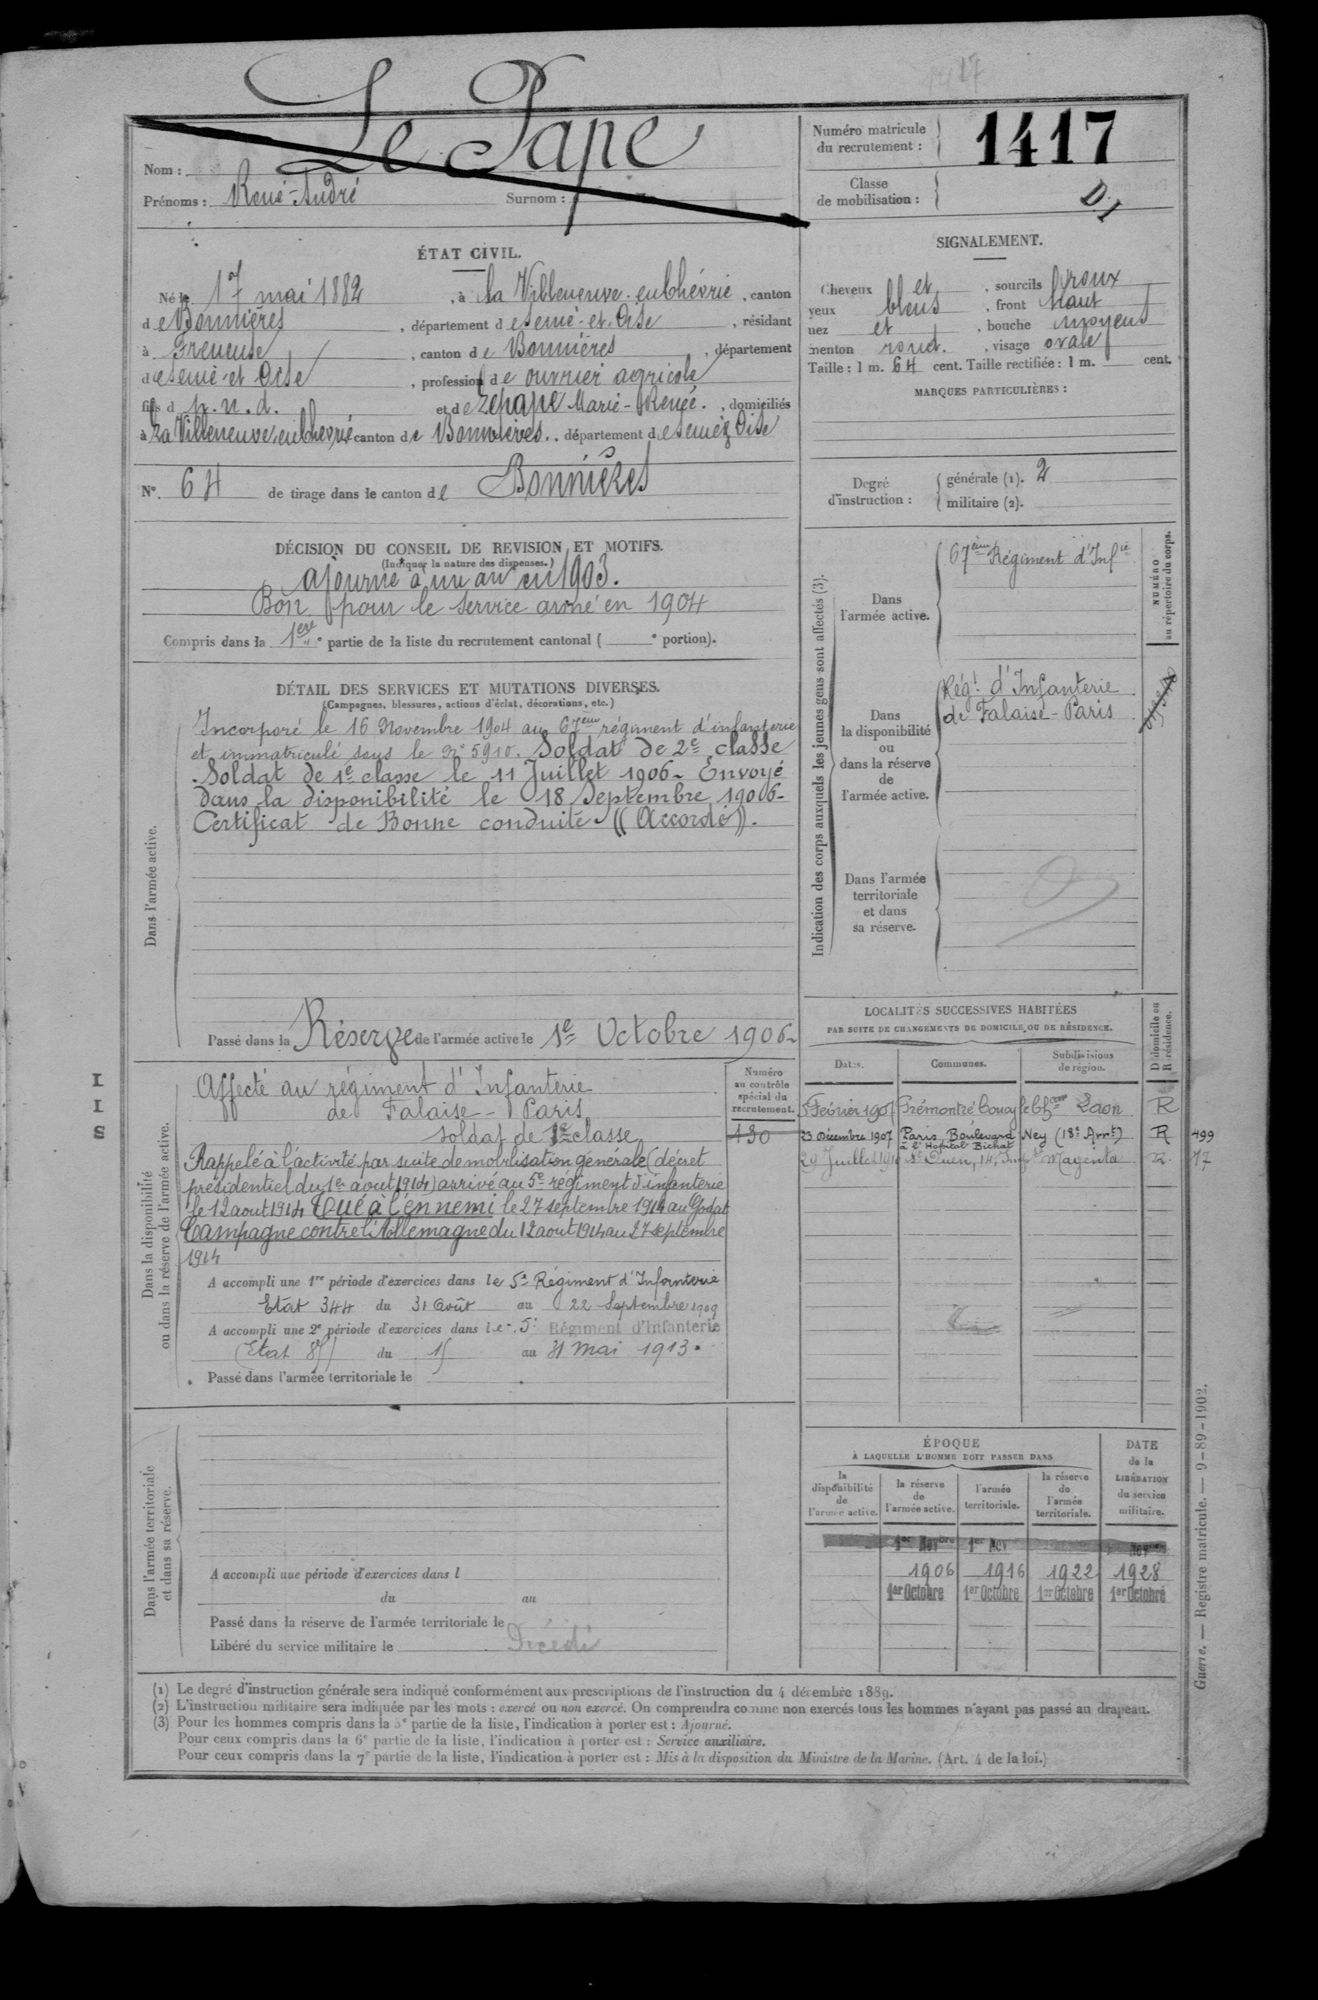 Le Pape
Nom :
Prénoms : René-André Surnom :
Numéro matricule du recrutement : 1417
Classe de mobilisation :
D.I
ÉTAT CIVIL.
Né le 17 mai 1882, à la Villeneuve-en-Chévrie, canton
de Bonnières, département de Seine-et-Oise, résidant
à Freneuse, canton de Bonnières, département
de Seine-et-Oise, profession de ouvrier agricole
fils d p. n. d. et de Lepape Marie-Renée., domiciliés
à La Villeneuve-en-Chevrie canton de Bonnières., département de Seine & Oise
N° 64 de tirage dans le canton de Bonnières
SIGNALEMENT.
Cheveux et, sourcils roux
yeux bleus, front haut
nez et, bouche moyens
menton rond., visage ovale
Taille : 1 m. 64 cent. Taille rectifiée : 1 m. cent.
MARQUES PARTICULIÈRES :
Degré d'instruction : générale (1). 2
militaire (2).
DÉCISION DU CONSEIL DE REVISION ET MOTIFS.
(Indiquer la nature des dispenses.)
ajourné à un an en 1903.
Bon pour le service armé en 1904
Compris dans la 1ere partie de la liste du recrutement cantonal ( e portion).
DÉTAIL DES SERVICES ET MUTATIONS DIVERSES.
(Campagnes, blessures, actions d'éclat, décorations, etc.)
Dans l'armée active.
Incorporé le 16 Novembre 1904 au 67eme régiment d'infanterie
et immatriculé sous le N° 5910. Soldat de 2e classe
Soldat de 1e classe le 11 Juillet 1906- Envoyé
dans la disponibilité le 18 Septembre 1906-
Certificat de Bonne conduite "Accordé".
Passé dans la Réserve de l'armée active le 1e Octobre 1906-
Indication des corps auxquels les jeunes gens sont affectés (3).
NUMÉRO au répertoire du corps.
Dans l'armée active.
67ème Régiment d'Infie
Dans la disponibilité ou dans la réserve de l'armée active.
Régt d'Infanterie
de Falaise-Paris
Dans l'armée territoriale et dans sa réserve.
LOCALITÉS SUCCESSIVES HABITÉES
PAR SUITE DE CHANGEMENTS DE DOMICILE OU DE RÉSIDENCE.
D domicile ou R résidence.
Dates. Communes. Subdivisions de région.
5 Février 1907 Prémontré Coucy le Chau Laon R
23 Décembre 1907 Paris, Boulevard Ney (18e Arrt) R 499
à l'Hopital Bichat
29 Juillet 1910 St Ouen, 14, Magenta R. 17
Dans la disponibilité ou dans la réserve de l'armée active.
Numéro au contrôle spécial du recrutement.
430
Affecté au régiment d'Infanterie
de Falaise - Paris
soldat de 1e classe
Rappelé à l'activité par suite de mobilisation générale (décret
présidentiel du 1er aout 1914) arrivé au 5e régiment d'infanterie
le 12 aout 1914 Tué à l'ennemi le 27 septembre 1914 au Godat
Campagne contre l'Allemagne du 12 aout 1914 au 27 septembre
1914
A accompli une 1re période d'exercices dans le 5e Régiment d'Infanterie
Etat 344 du 31 Août au 22 Septembre 1909
A accompli une 2e période d'exercices dans le 5e Régiment d'Infanterie
du 15 au 31 Mai 1913.
Passé dans l'armée territoriale le
ÉPOQUE
À LAQUELLE L'HOMME DOIT PASSER DANS
DATE de la LIBÉRATION du service militaire.
la disponibilité de l'armée active.
la réserve de l'armée active.
l'armée territoriale.
la réserve de l'armée territoriale.
1906 1916 1922 1928
1er Octobre 1er Octobre 1er Octobre 1er Octobre
Dans l'armée territoriale et dans sa réserve.
A accompli une période d'exercices dans l
du au
Passé dans la réserve de l'armée territoriale le
Libéré du service militaire le Décédé
(1) Le degré d'instruction générale sera indiqué conformément aux prescriptions de l'instruction du 4 décembre 1889.
(2) L'instruction militaire sera indiquée par les mots : exercé ou non exercé. On comprendra comme non exercés tous les hommes n'ayant pas passé au drapeau.
(3) Pour les hommes compris dans la 5e partie de la liste, l'indication à porter est : Ajourné.
Pour ceux compris dans la 6e partie de la liste, l'indication à porter est : Service auxiliaire.
Pour ceux compris dans la 7e partie de la liste, l'indication à porter est : Mis à la disposition du Ministre de la Marine. (Art. 4 de la loi.)
Guerre. — Registre matricule. — 9-89-1902.